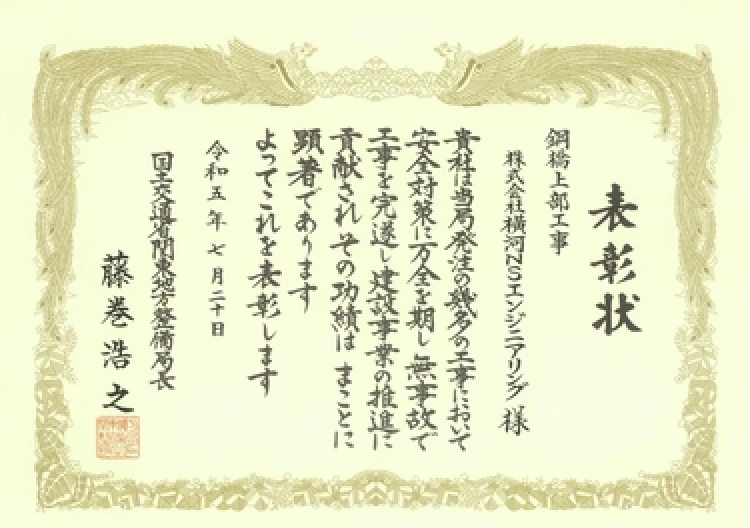 表彰状
鋼橋上部工事
株式会社横河NSエンジニアリング 様
貴社は当局発注の幾多の工事において
安全対策に万全を期し無事故で
工事を完遂し建設事業の推進に
貢献され その功績は まことに
顕著であります
よってこれを表彰します
令和五年七月二十日
国土交通省関東地方整備局長
藤巻浩之